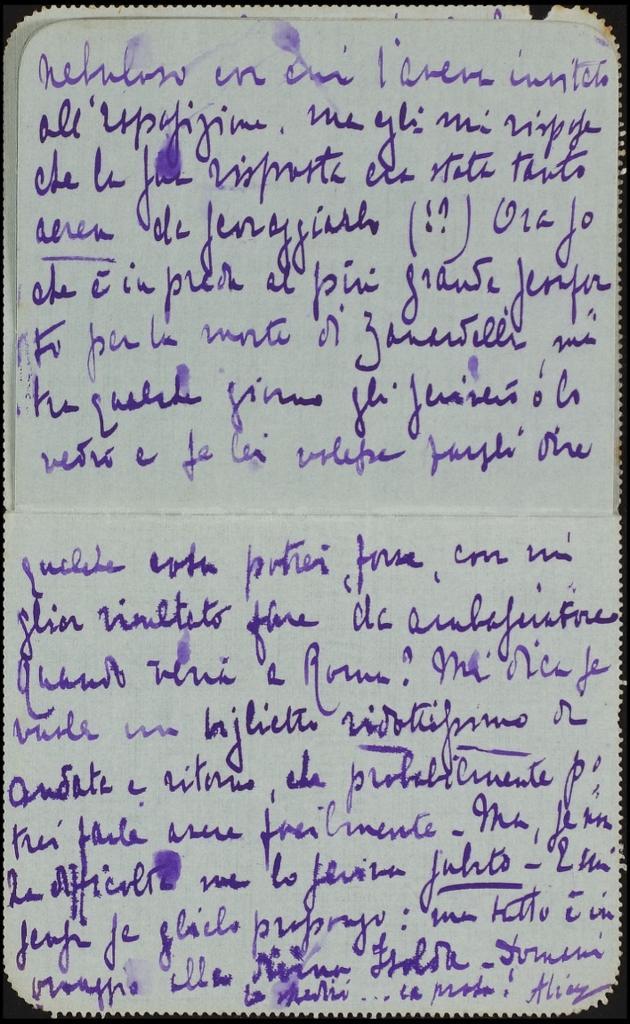 nebuloso con cui l'aveva invitato
all'esposizione. ma egli mi rispose
che la sua risposta era stata tanto
aerea da scoraggiarlo (!?) Ora so
che è in preda al più grande sconfor
to per la morte di Zanardelli, ma
tra qualche giorno gli scriverò o lo
vedrò e se lei volesse fargli dire
qualche cosa potrei, forse, con mi
glior risultato fare da ambasciatore
Quando verrà a Roma? Mi dica se
vuole un biglietto ridottissimo di
andata e ritorno, che probabilmente po
trei farle avere facilmente - Ma, se non
ha difficoltà me lo scriva subito - E mi
scusi se glielo propongo: ma tutto è in
omaggio alla divina Isolda - Domani
le spedirò ... la prosa!